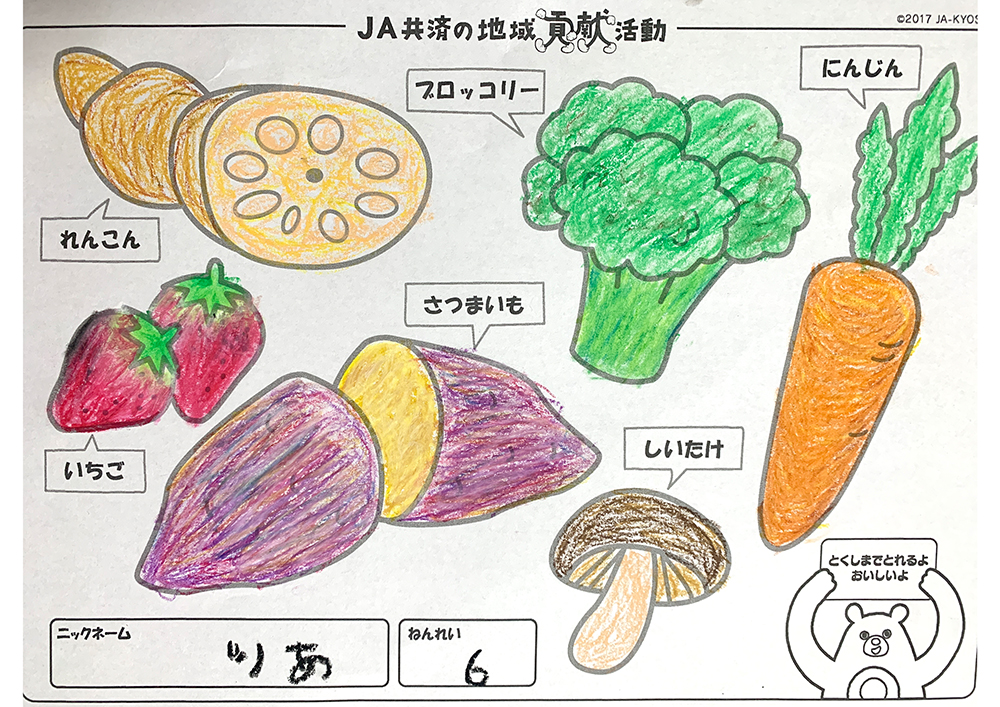 JA共済の地域貢献活動
©2017 JA-KYOS
ブロッコリー
にんじん
れんこん
さつまいも
いちご
しいたけ
とくしまでとれるよ
おいしいよ
ニックネーム
りあ
ねんれい
6